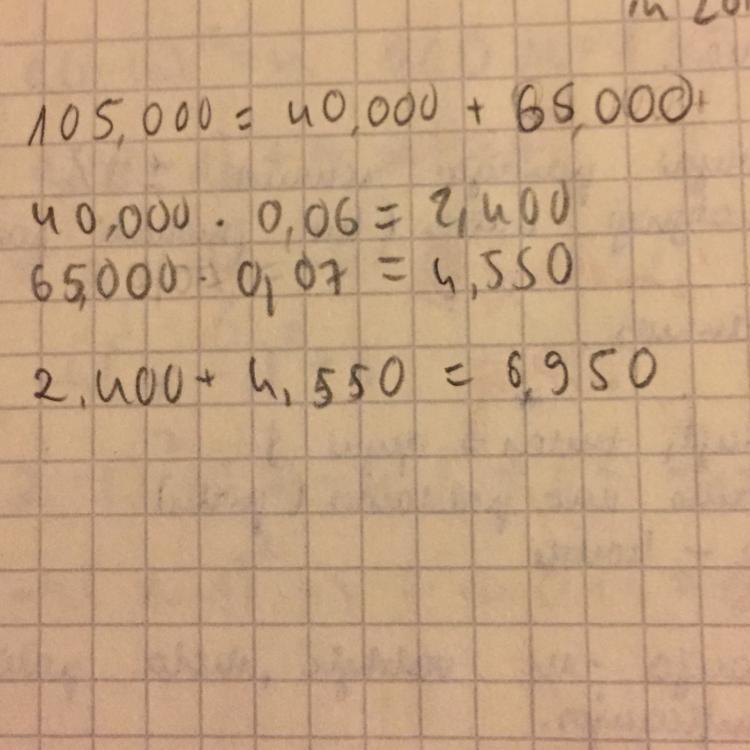 105,000 = 40,000 + 65,000
40,000 · 0,06 = 2,400
65,000 · 0,07 = 4,550
2,400 + 4,550 = 6,950